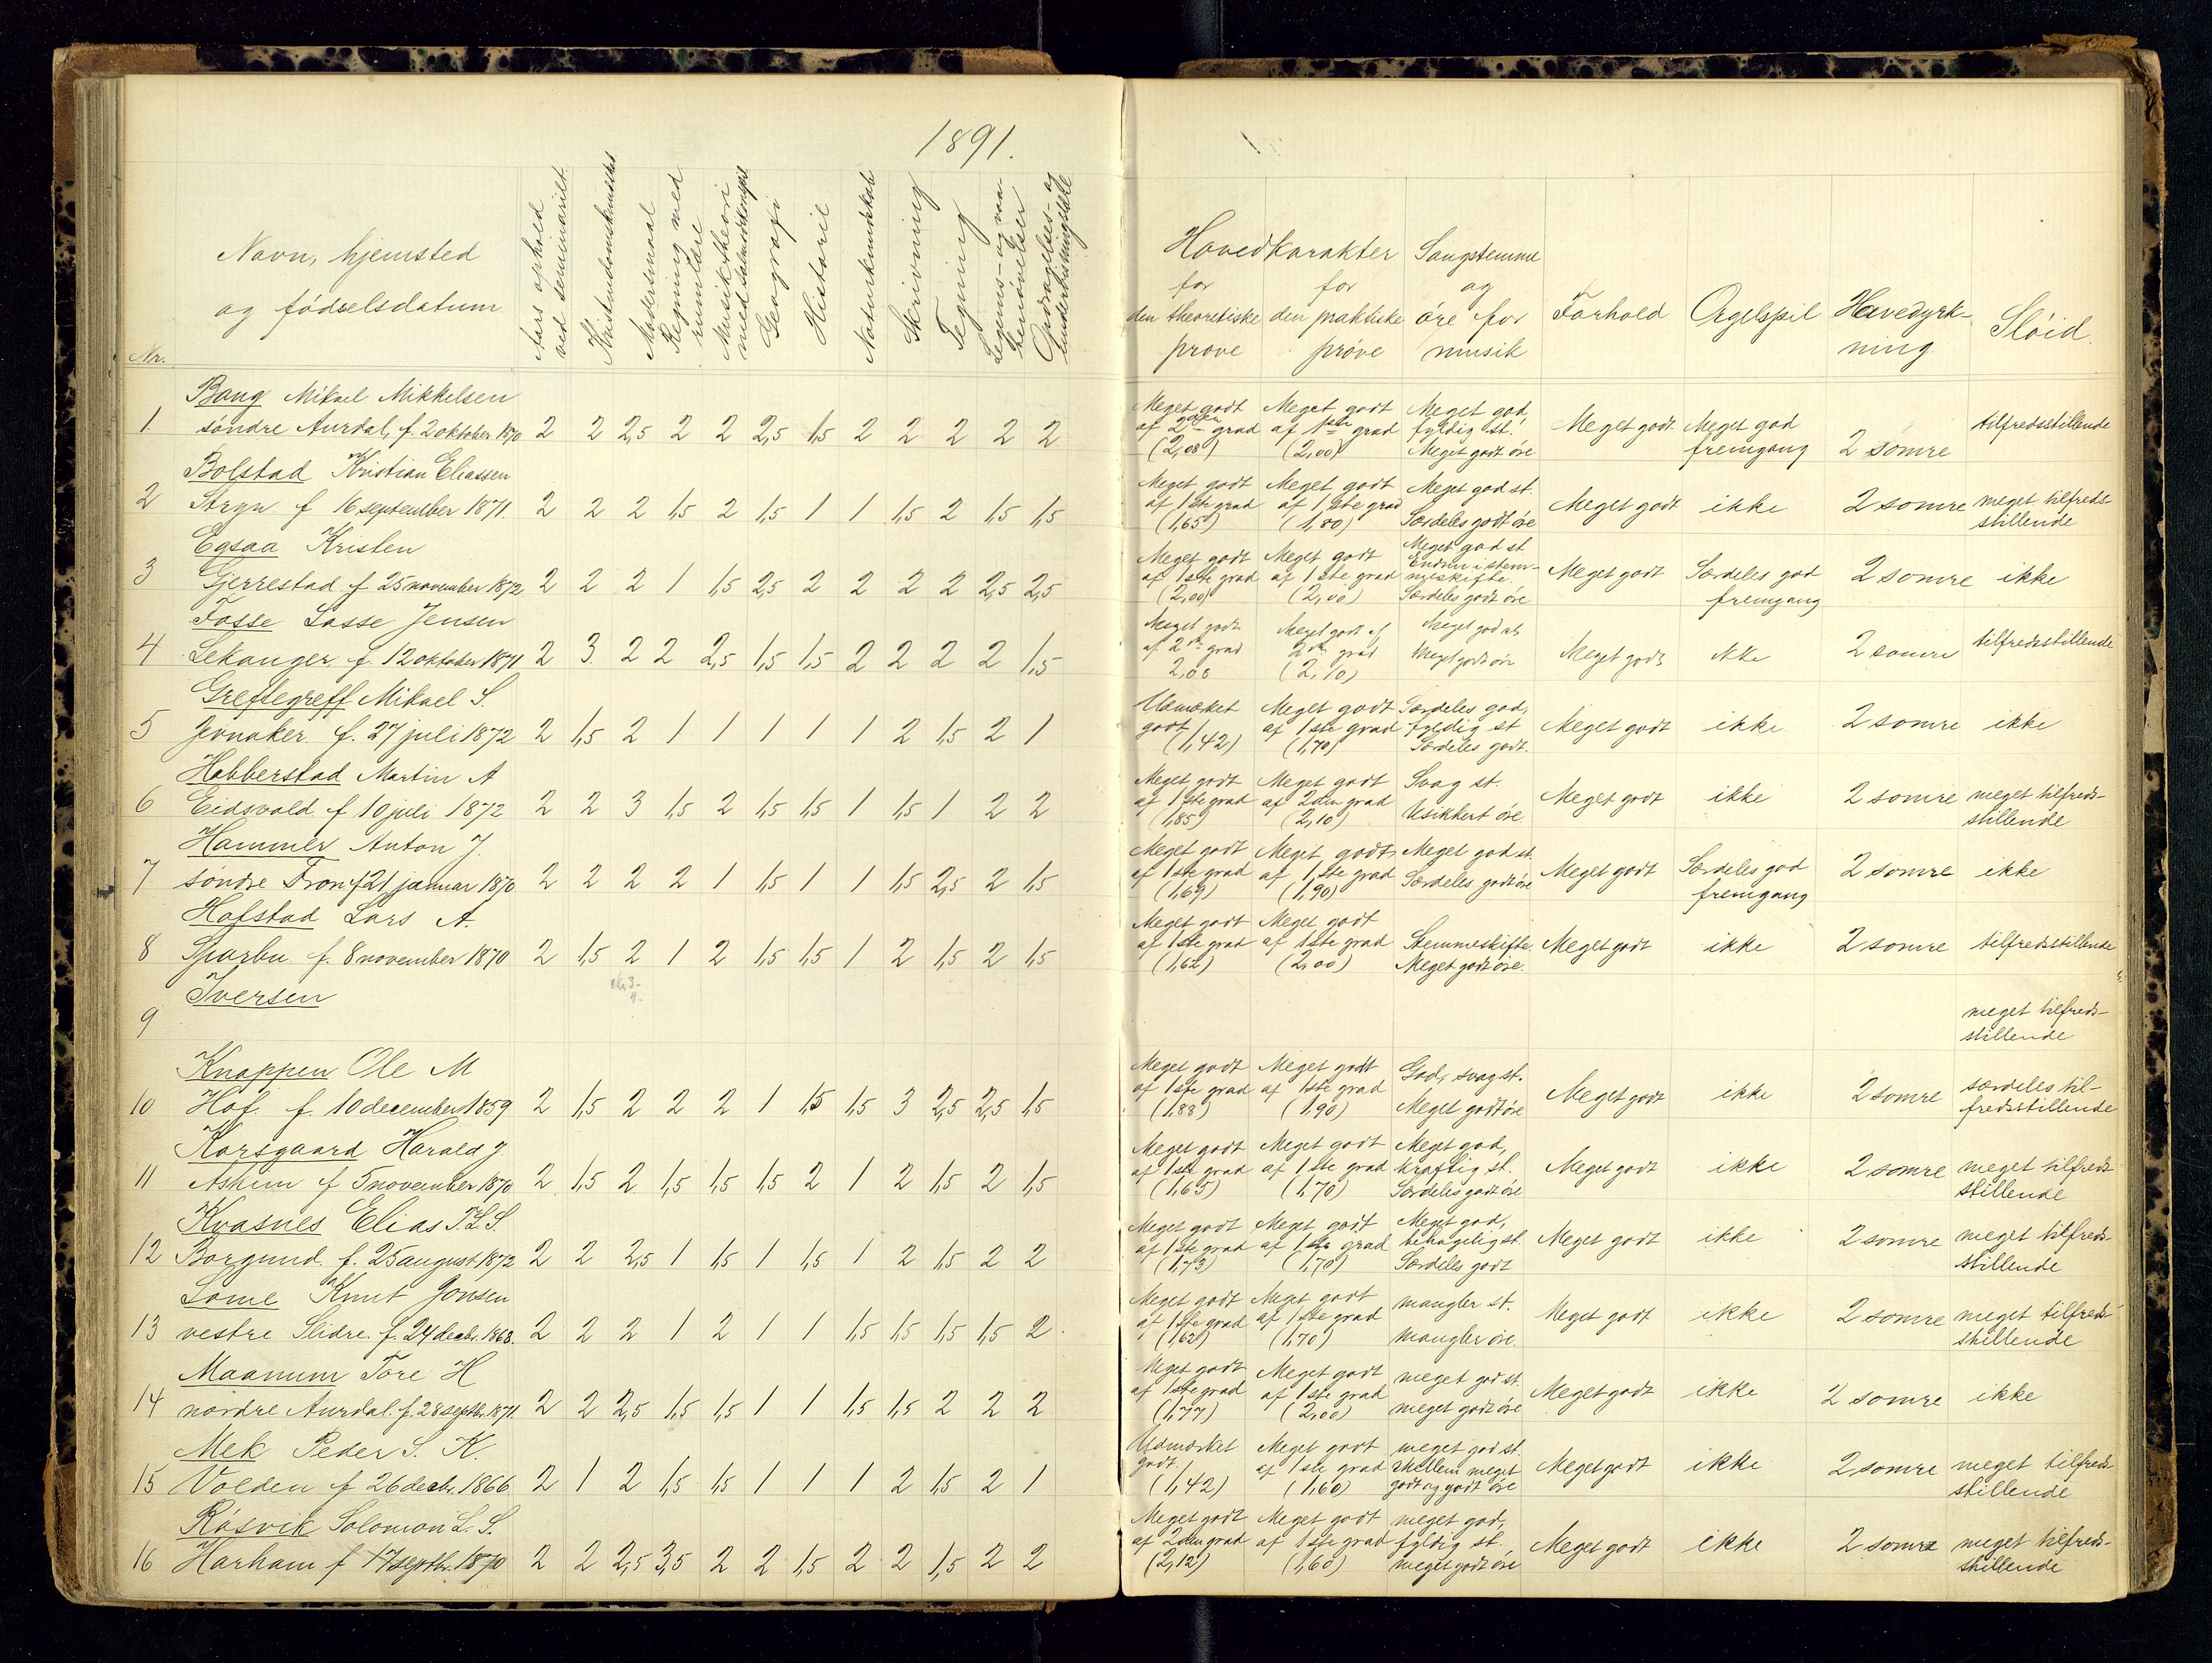 1891.
Nr.
Navn, hjemsted
og fødselsdatum
Aars ophold
ved seminariet
Kristendomskundskab
Modersmaal
Regning med
rumlære
Musiktheori
med
Geografi
Historie
Naturkundskab
Skrivning
Tegning
Legems- og vaa-
benøvelser
Opdragelses- og
undervisningslære
Hovedkarakter
for
den theoretiske
prøve
for
den praktiske
prøve
Sangstemme
og
øre for
musik
Forhold
Orgelspil
Havedyrk-
ning.
Sløid.
Bang Mikael Mikkelsen
1 søndre Aurdal, f. 2 oktober 1870 2 2 2,5 2 2 2,5 1,5 2 2 2 2 2
Meget godt
af 2den grad
(2,08)
Meget godt
af 1ste grad
(2,00)
Meget god,
fyldig st.
Meget godt øre
Meget godt
Meget god
fremgang
2 somre
tilfredsstillende
Bolstad Kristian Eliassen
2 Stryn f 16 september 1871 2 2 2 1,5 2 1,5 1 1 1,5 2 1,5 1,5
Meget godt
af 1ste grad
(1,65)
Meget godt
af 1ste grad
(1,80)
Meget god st.
Særdeles godt øre
Meget godt
ikke
2 somre
meget tilfreds-
stillende
Egsaa Kristen
3 Gjerrestad f 25 november 1872 2 2 2 1 1,5 2,5 2 2 2 2 2,5 2,5
Meget godt
af 1ste grad
(2,00)
Meget godt
af 1ste grad
(2,00)
Meget god st
Endnu i stem-
meskifte.
Særdeles godt øre
Meget godt
Særdeles god
fremgang
2 somre
ikke
Fosse Lasse Jensen
4 Lekanger f. 12 oktober 1871 2 3. 2 2 2,5 1,5 1,5 2 2 2 2 1,5
Meget godt
af 2den grad
2,08
Meget godt af
2den grad
(2,10)
Meget god st.
Meget godt øre
Meget godt
ikke
2 somre
tilfredsstillende
Greftegreff Mikael S.
5 Jevnaker f. 27 juli 1872 2 1,5 2 1 1 1 1 1 2 1,5 2 1
Udmærket
godt
(1,42)
Meget godt
af 1ste grad
(1,70)
Særdeles god,
fyldig st
Særdeles godt.
Meget godt
ikke
2 somre
ikke
Habberstad Martin A
6 Eidsvold f 10 juli 1872 2 2 3 1,5 2 1,5 1,5 1 1,5 1 2 2
Meget godt
af 1ste grad
(1,85)
Meget godt
af 2den grad
(2,10)
Svag st.
Usikkert øre.
Meget godt
ikke
2 somre
meget tilfreds-
stillende
Hammer Anton J.
7 søndre Fron f 21 januar 1870 2 2 2 2 1 1,5 1 1 1,5 2,5 2 1,5
Meget godt
af 1ste grad
(1,69)
Meget godt
af 1ste grad
(1,90)
Meget god st.
Særdeles godt øre
Meget godt
Særdeles god
fremgang
2 somre
ikke
Hofstad Lars A.
8 Sparbu f. 8 november 1870 2 1,5 2 1 2 1,5 1,5 1 2 1,5 2 1,5
Meget godt
af 1ste grad
(1,62)
Meget godt
af 1ste grad
(2,00)
Stemmeskifte.
Meget godt øre.
Meget godt
ikke
2 somre
tilfredsstillende
Iversen
9
meget tilfreds-
stillende
Knappen Ole M
10 Hof. f. 10 december 1859 2 1,5 2 2 2 1 1,5 1,5 3 2,5 2,5 1,5
Meget godt
af 1ste grad
(1,88)
Meget godt
af 1ste grad
(1,90)
God, svag st.
Meget godt øre
Meget godt
ikke
2 somre
særdeles til-
fredsstillende
Korsgaard Harald J
11 Askim f 5 november 1870 2 1,5 2 1,5 1,5 1,5 2 1 2 1,5 2 1,5
Meget godt
af 1ste grad
(1,65)
Meget godt
af 1ste grad
(1,70)
Meget god,
kraftig st.
Særdeles godt øre
Meget godt
ikke
2 somre
meget tilfreds-
stillende
Kvasnes Elias P.L.S.
12 Borgund f. 25 august 1872 2 2 2,5 1 1,5 1 1,5 1 2 1,5 2 2
Meget godt
af 1ste grad
(1,73)
Meget godt
af 1ste grad
(1,70)
Meget god,
behagelig st.
Særdeles godt
Meget godt
ikke
2 somre
meget tilfreds-
stillende
Lome Knut Jonsen
13 vestre Slidre. f. 24 decbr. 1868. 2 2 2 1 2 1 1 1,5 1,5 1,5 1,5 2
Meget godt
af 1ste grad
(1,62)
Meget godt
af 1ste grad
(1,70)
mangler st.
mangler øre.
Meget godt
ikke
2 somre
meget tilfreds-
stillende
Maanum Tore H
14 nordre Aurdal. f. 28 septbr. 1871. 2 2 2,5 1,5 1,5 1 1 1,5 1,5 2 2 2
Meget godt
af 1ste grad
(1,77)
Meget godt
af 1ste grad
(2,00)
meget god st.
meget godt øre
Meget godt
ikke
2 somre
ikke
Mek Peder S. K.
15 Volden f 26 decbr. 1866 2 1 2 1,5 1,5 1 1 1 2 1,5 2 1
Udmærket
godt.
(1,42)
Meget godt
af 1ste grad
(1,60)
meget god st.
mellem meget
godt og godt øre
Meget godt
ikke
2 somre
meget tilfreds-
stillende
Røsvik Solomon L. S.
16 Harham f 17 septbr. 1870 2 2 2,5 3,5 2 2 1,5 2 2 1,5 2 2
Meget godt
af 2den grad
(2,12)
Meget godt
af 1ste grad
(1,60)
meget god,
fyldig st.
meget godt øre
Meget godt
ikke
2 somre
meget tilfreds-
stillende